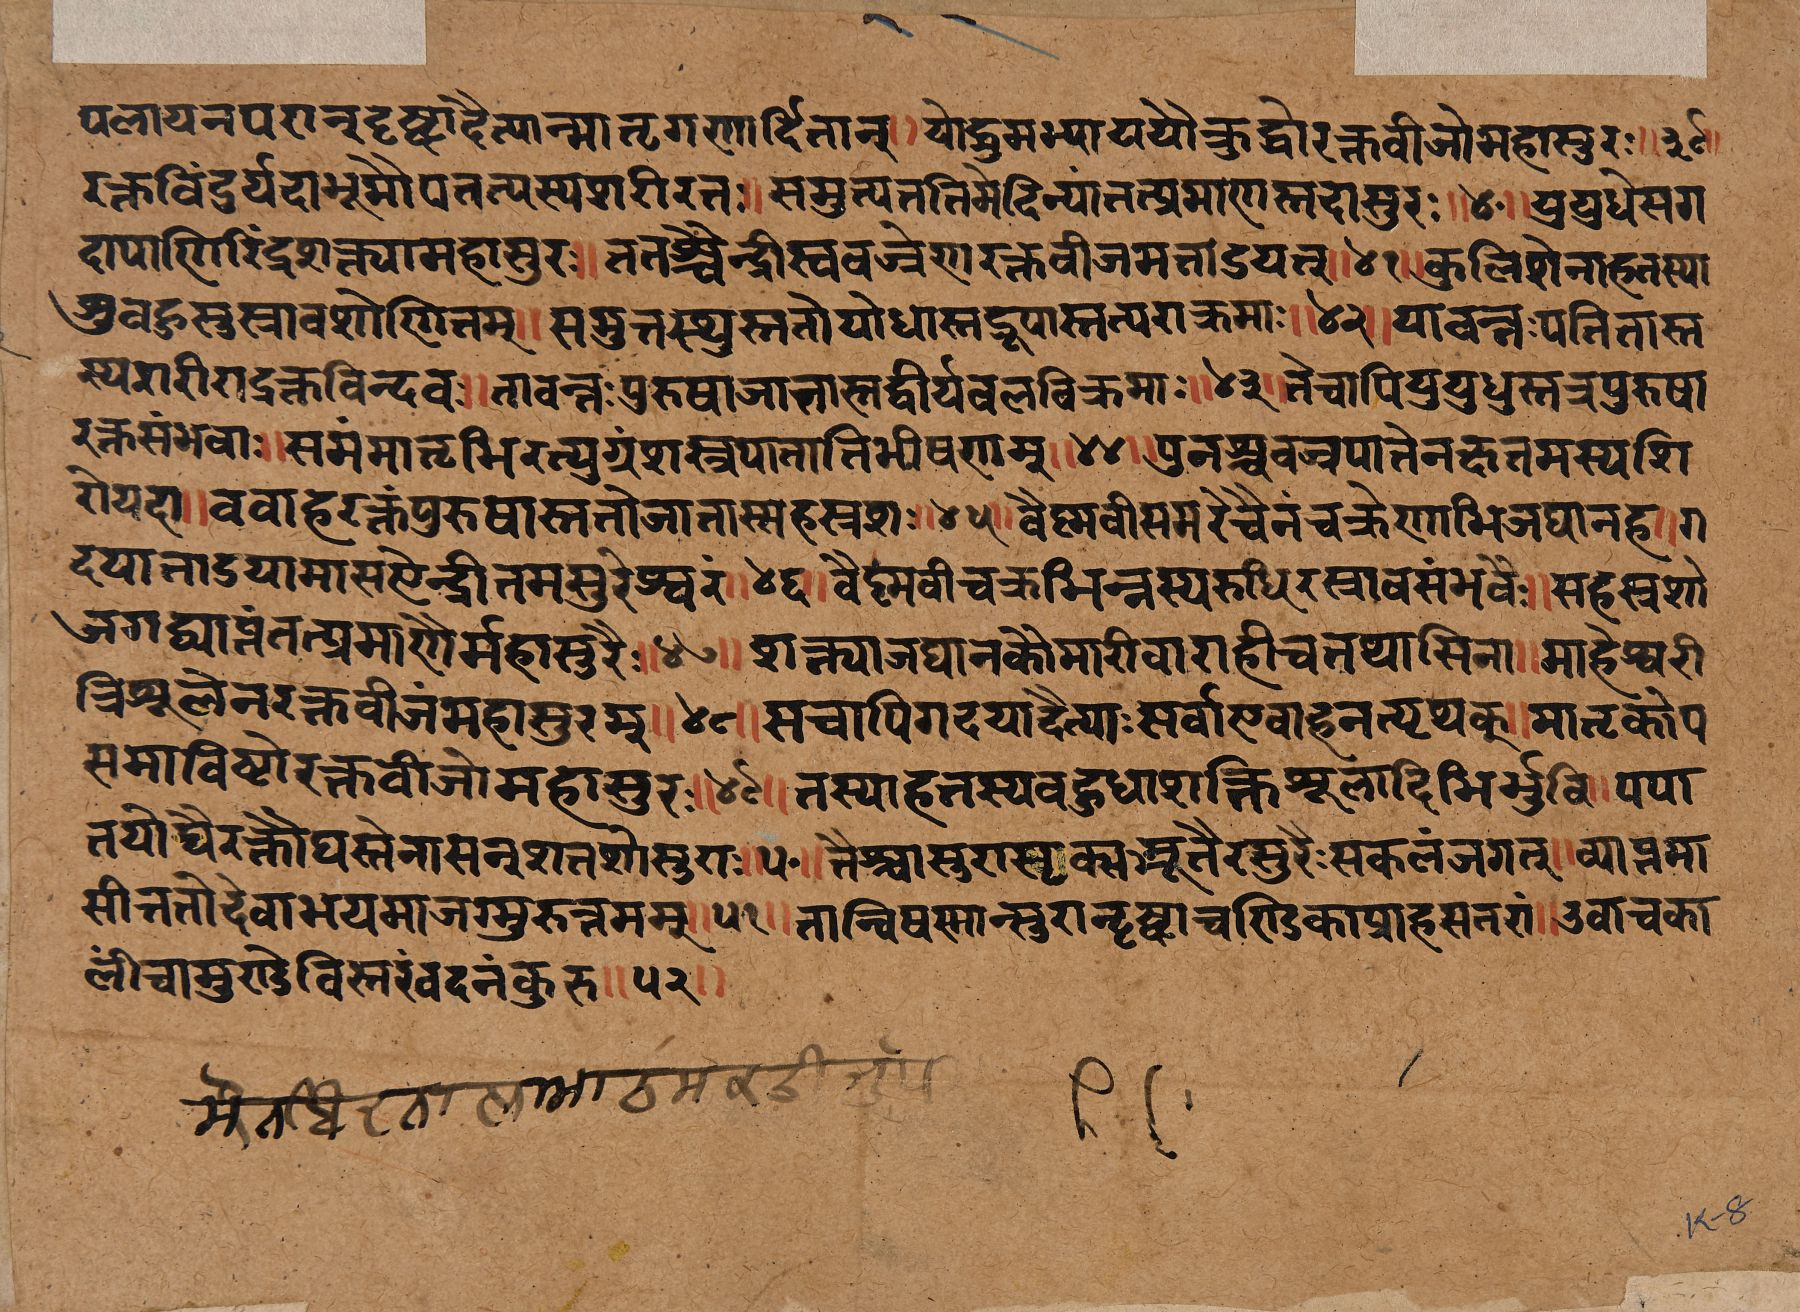 पलायनपरान्दृष्ट्वादैत्यान्मातृगणार्दितान्॥योद्धुमभ्याययौक्रुद्धोरक्तवीजोमहासुरः॥३९॥
रक्तविंदुर्यदाभूमौपतत्यस्यशरीरतः॥समुत्पततिमेदिन्यांतत्प्रमाणस्तदासुरः॥४०॥युयुधेसग
दापाणिरिंद्रशक्त्यामहासुरः॥ततश्चैन्द्रीस्ववज्रेणरक्तवीजमताडयत्॥४१॥कुलिशेनाहतस्या
शुवहुसुस्रावशोणितम्॥समुत्तस्थुस्ततोयोधास्तद्रूपास्तत्पराक्रमाः॥४२॥यावन्तःपतितास्त
स्यशरीराद्रक्तविन्दवः॥तावन्तःपुरुषाजातास्तद्वीर्यवलविक्रमाः॥४३॥तेचापियुयुधुस्तत्रपुरुषा
रक्तसंभवाः॥समंमातृभिरत्युग्रंशस्त्रपातातिभीषणम्॥४४॥पुनश्चवज्रपातेनक्षतमस्यशि
रोयदा॥ववाहरक्तंपुरुषास्ततोजातास्सहस्रशः॥४५॥वैष्णवीसमरेचैनंचक्रेणाभिजघानह॥ग
दयाताडयामासऐन्द्रीतमसुरेश्वरं॥४६॥वैष्णवीचक्रभिन्नस्यरुधिरस्रावसंभवैः॥सहस्रशो
जगद्व्याप्तंतत्प्रमाणैर्महासुरैः॥४७॥शक्त्याजघानकौमारीवाराहीचतथासिना॥माहेश्वरी
त्रिशूलेनरक्तवीजंमहासुरम्॥४८॥सचापिगदयादैत्याःसर्वाएवाहनत्पृथक्॥मातृकोप
समाविष्टोरक्तवीजोमहासुरः॥४९॥तस्याहतस्यवहुधाशक्तिशूलादिभिर्भुवि॥पपा
तयोघैरक्तौघस्तेनासन्शतशोसुराः॥५०॥तैश्चासुरासृक्सम्भूतैरसुरैःसकलंजगत्॥व्याप्तमा
सीत्ततोदेवाभयमाजग्मुरुत्तमम्॥५१॥तान्विषस्मान्सुरान्दृष्ट्वाचण्डिकाप्राहसतरां॥उवाचका
लींचामुण्डेविस्तरंवदनंकुरु॥५२॥
K-8